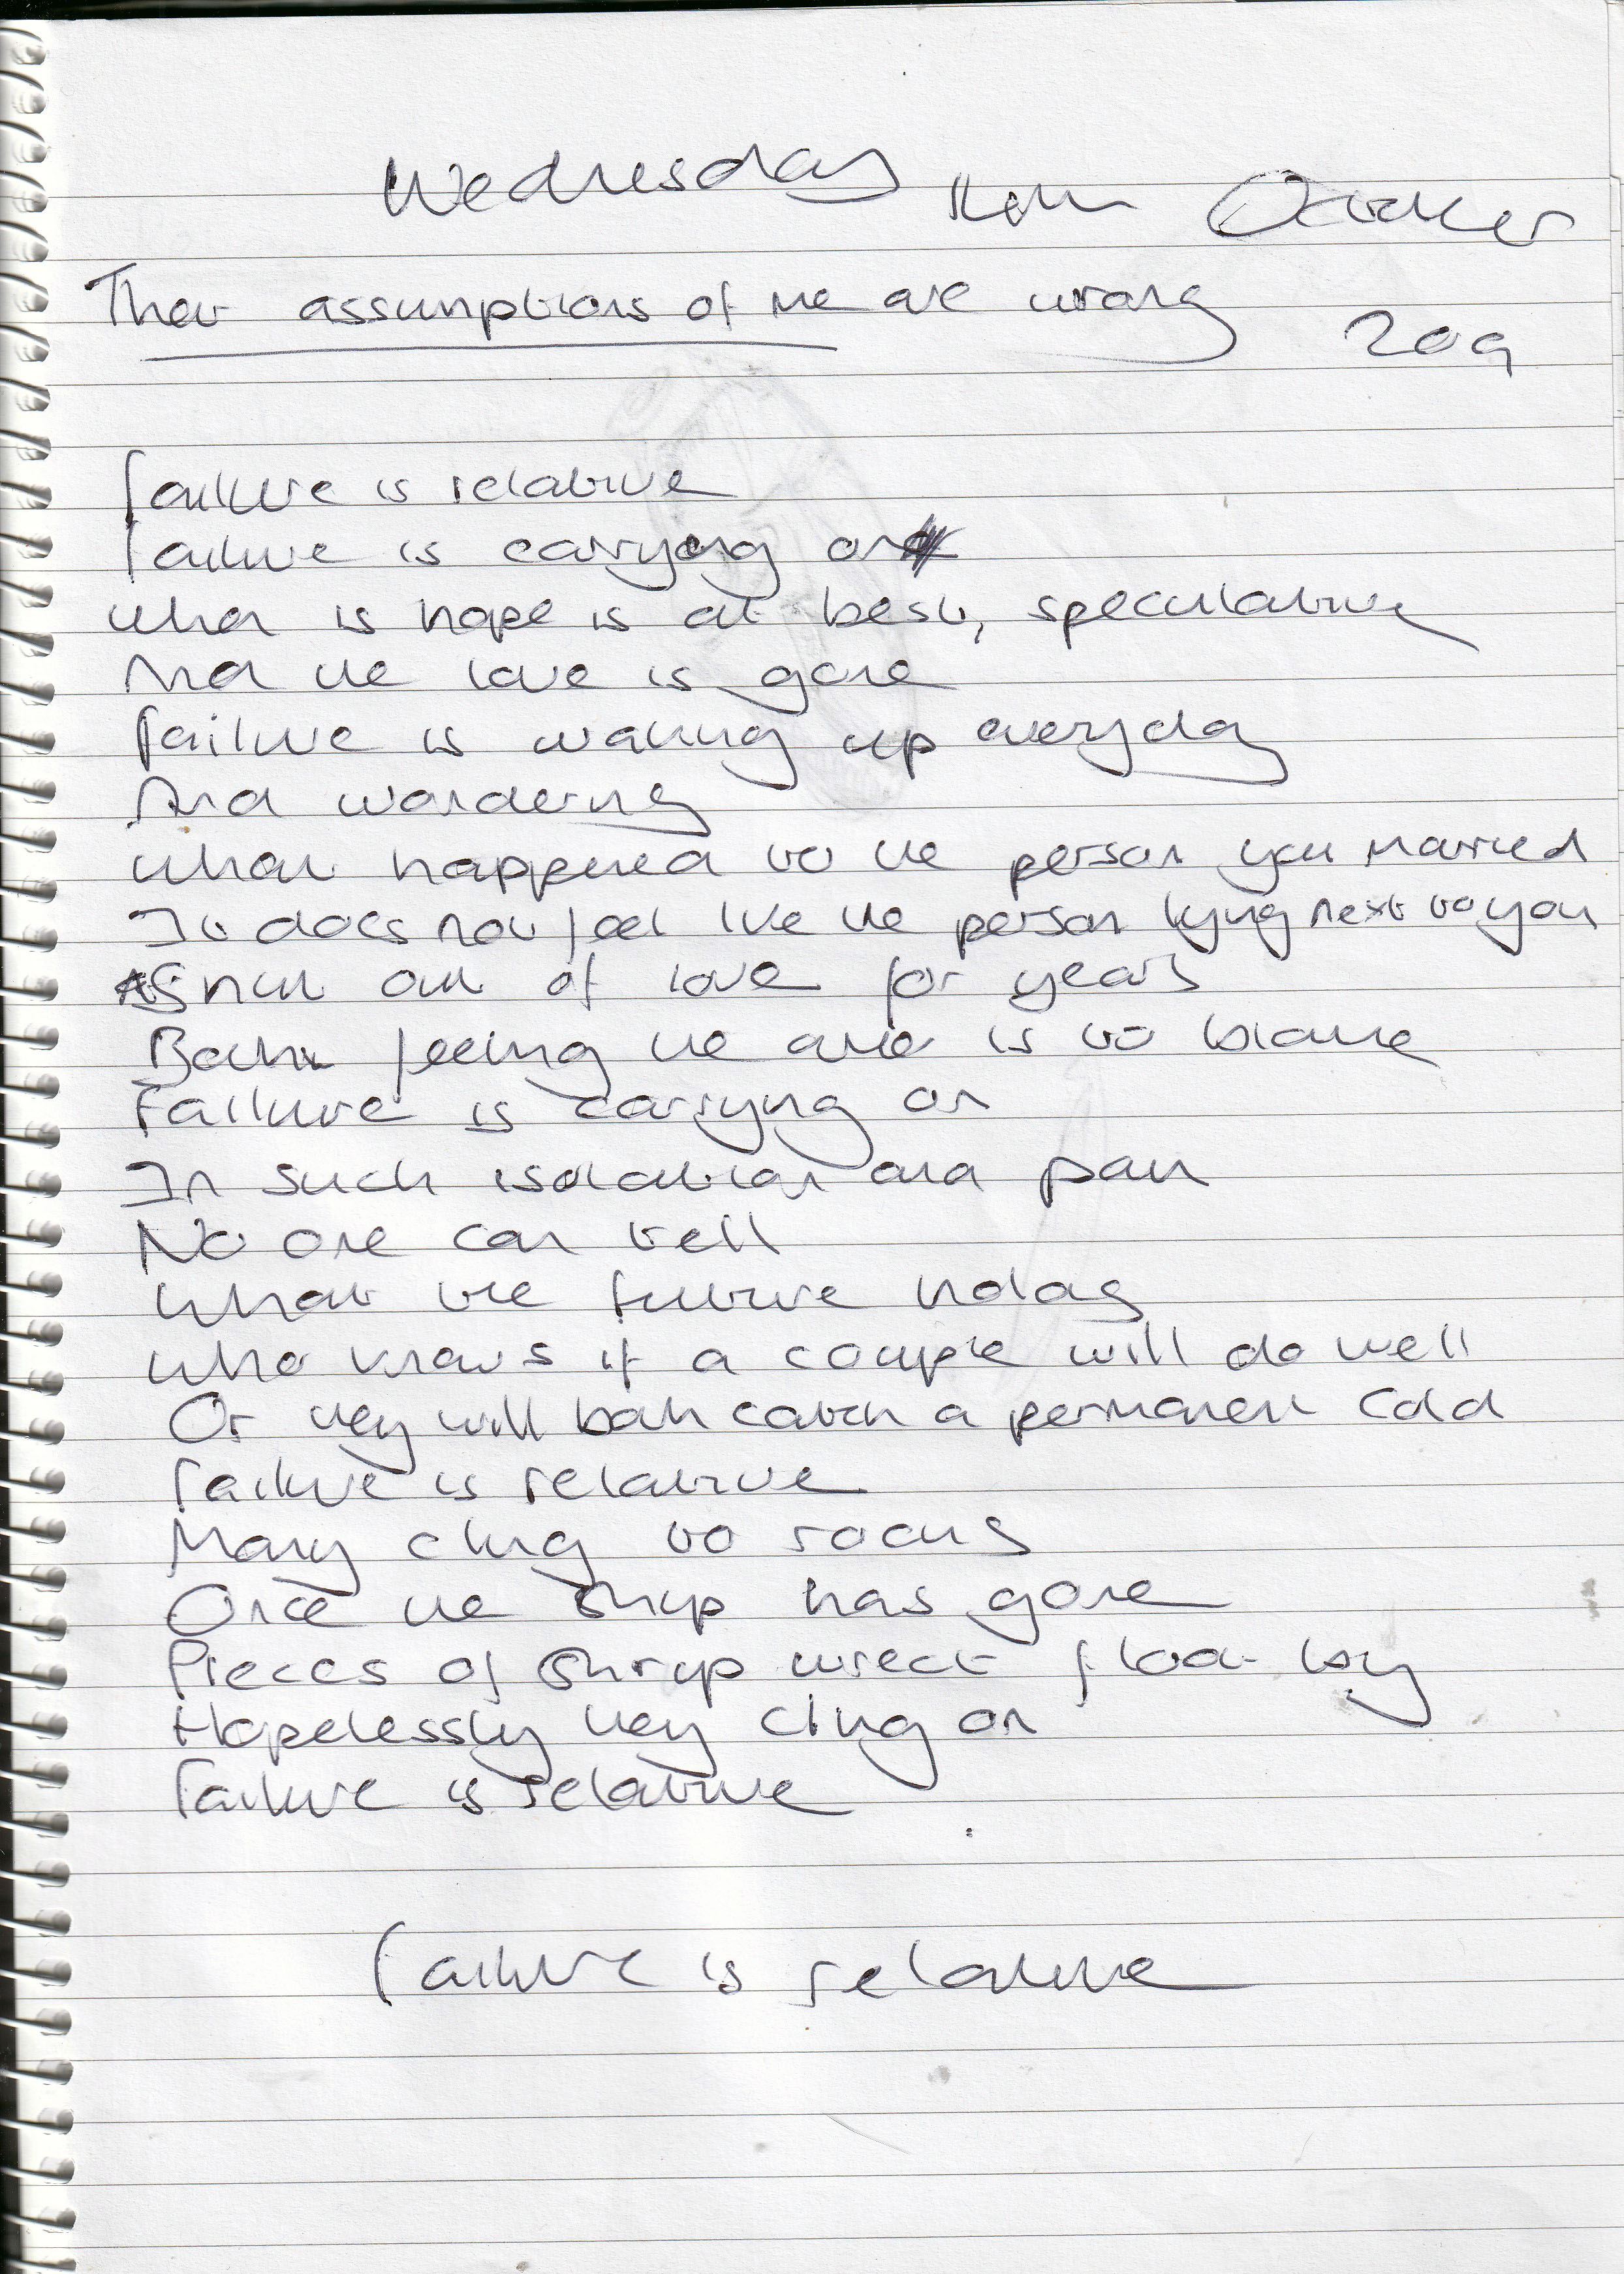 Wednesday 11th October
Their assumptions of me are wrong
209
Failure is relative
Failure is carrying on
When is hope is at best, speculative
And the love is gone
Failure is waking up everyday
And wondering
What happened to the person you married
It does not feel like the person lying next to you
out of love for years
Both feeling the other is to blame
Failure is carrying on
In such isolation and pain
No one can tell
What the future holds
Who knows if a couple will do well
Or they will both catch a permanent cold
Failure is relative
Many cling to rocks
Once the ship has gone
Pieces of ship wreck float by
Hopelessly they cling on
Failure is relative
Failure is relative